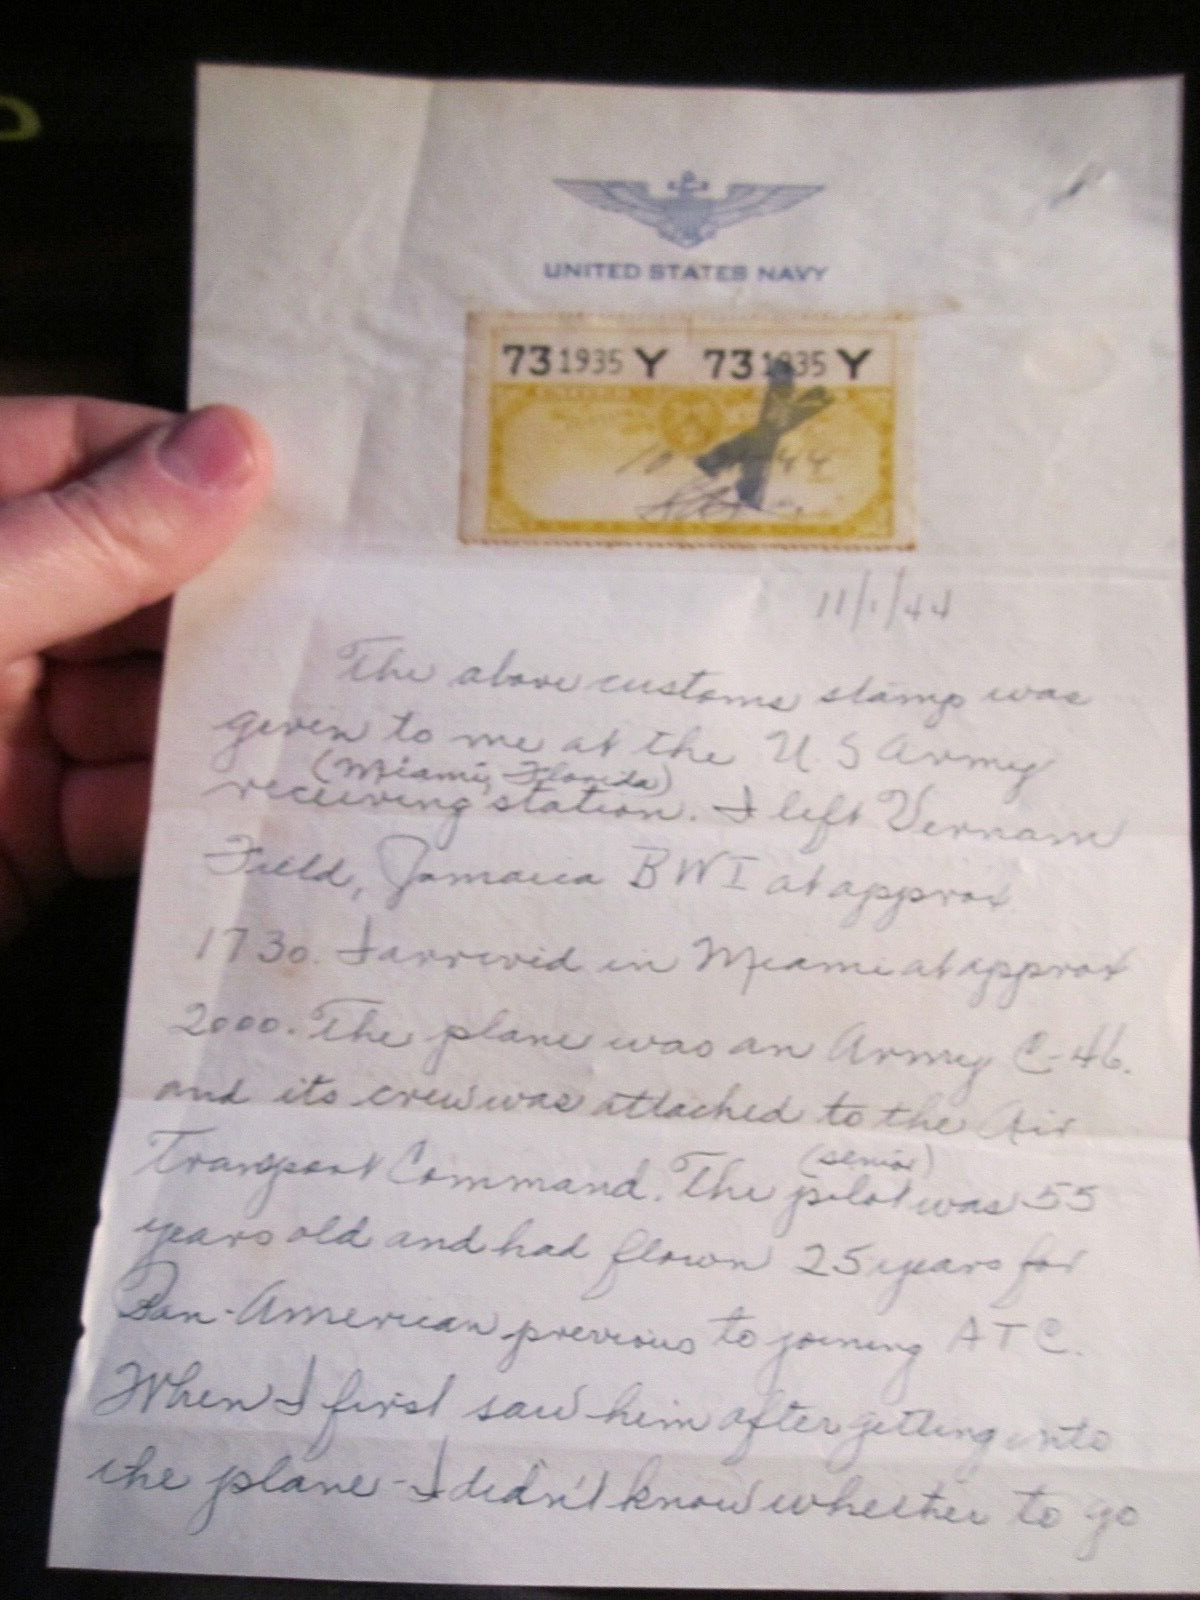 UNITED STATES NAVY
73 1935 Y 73 1935 Y
10 44
11/1/44
The above customs stamp was
given to me at the U.S Army
(Miami, Florida)
receiving station. I left Vernam
Field, Jamaica BWI at approx
1730. I arrived in Miami at approx
2000. The plane was an Army C-46.
and its crew was attached to the Air
(senior)
Transport Command. The pilot was 55
years old and had flown 25 years for
Pan-American previous to joining ATC.
When I first saw him after getting into
the plane - I didn't know whether to go